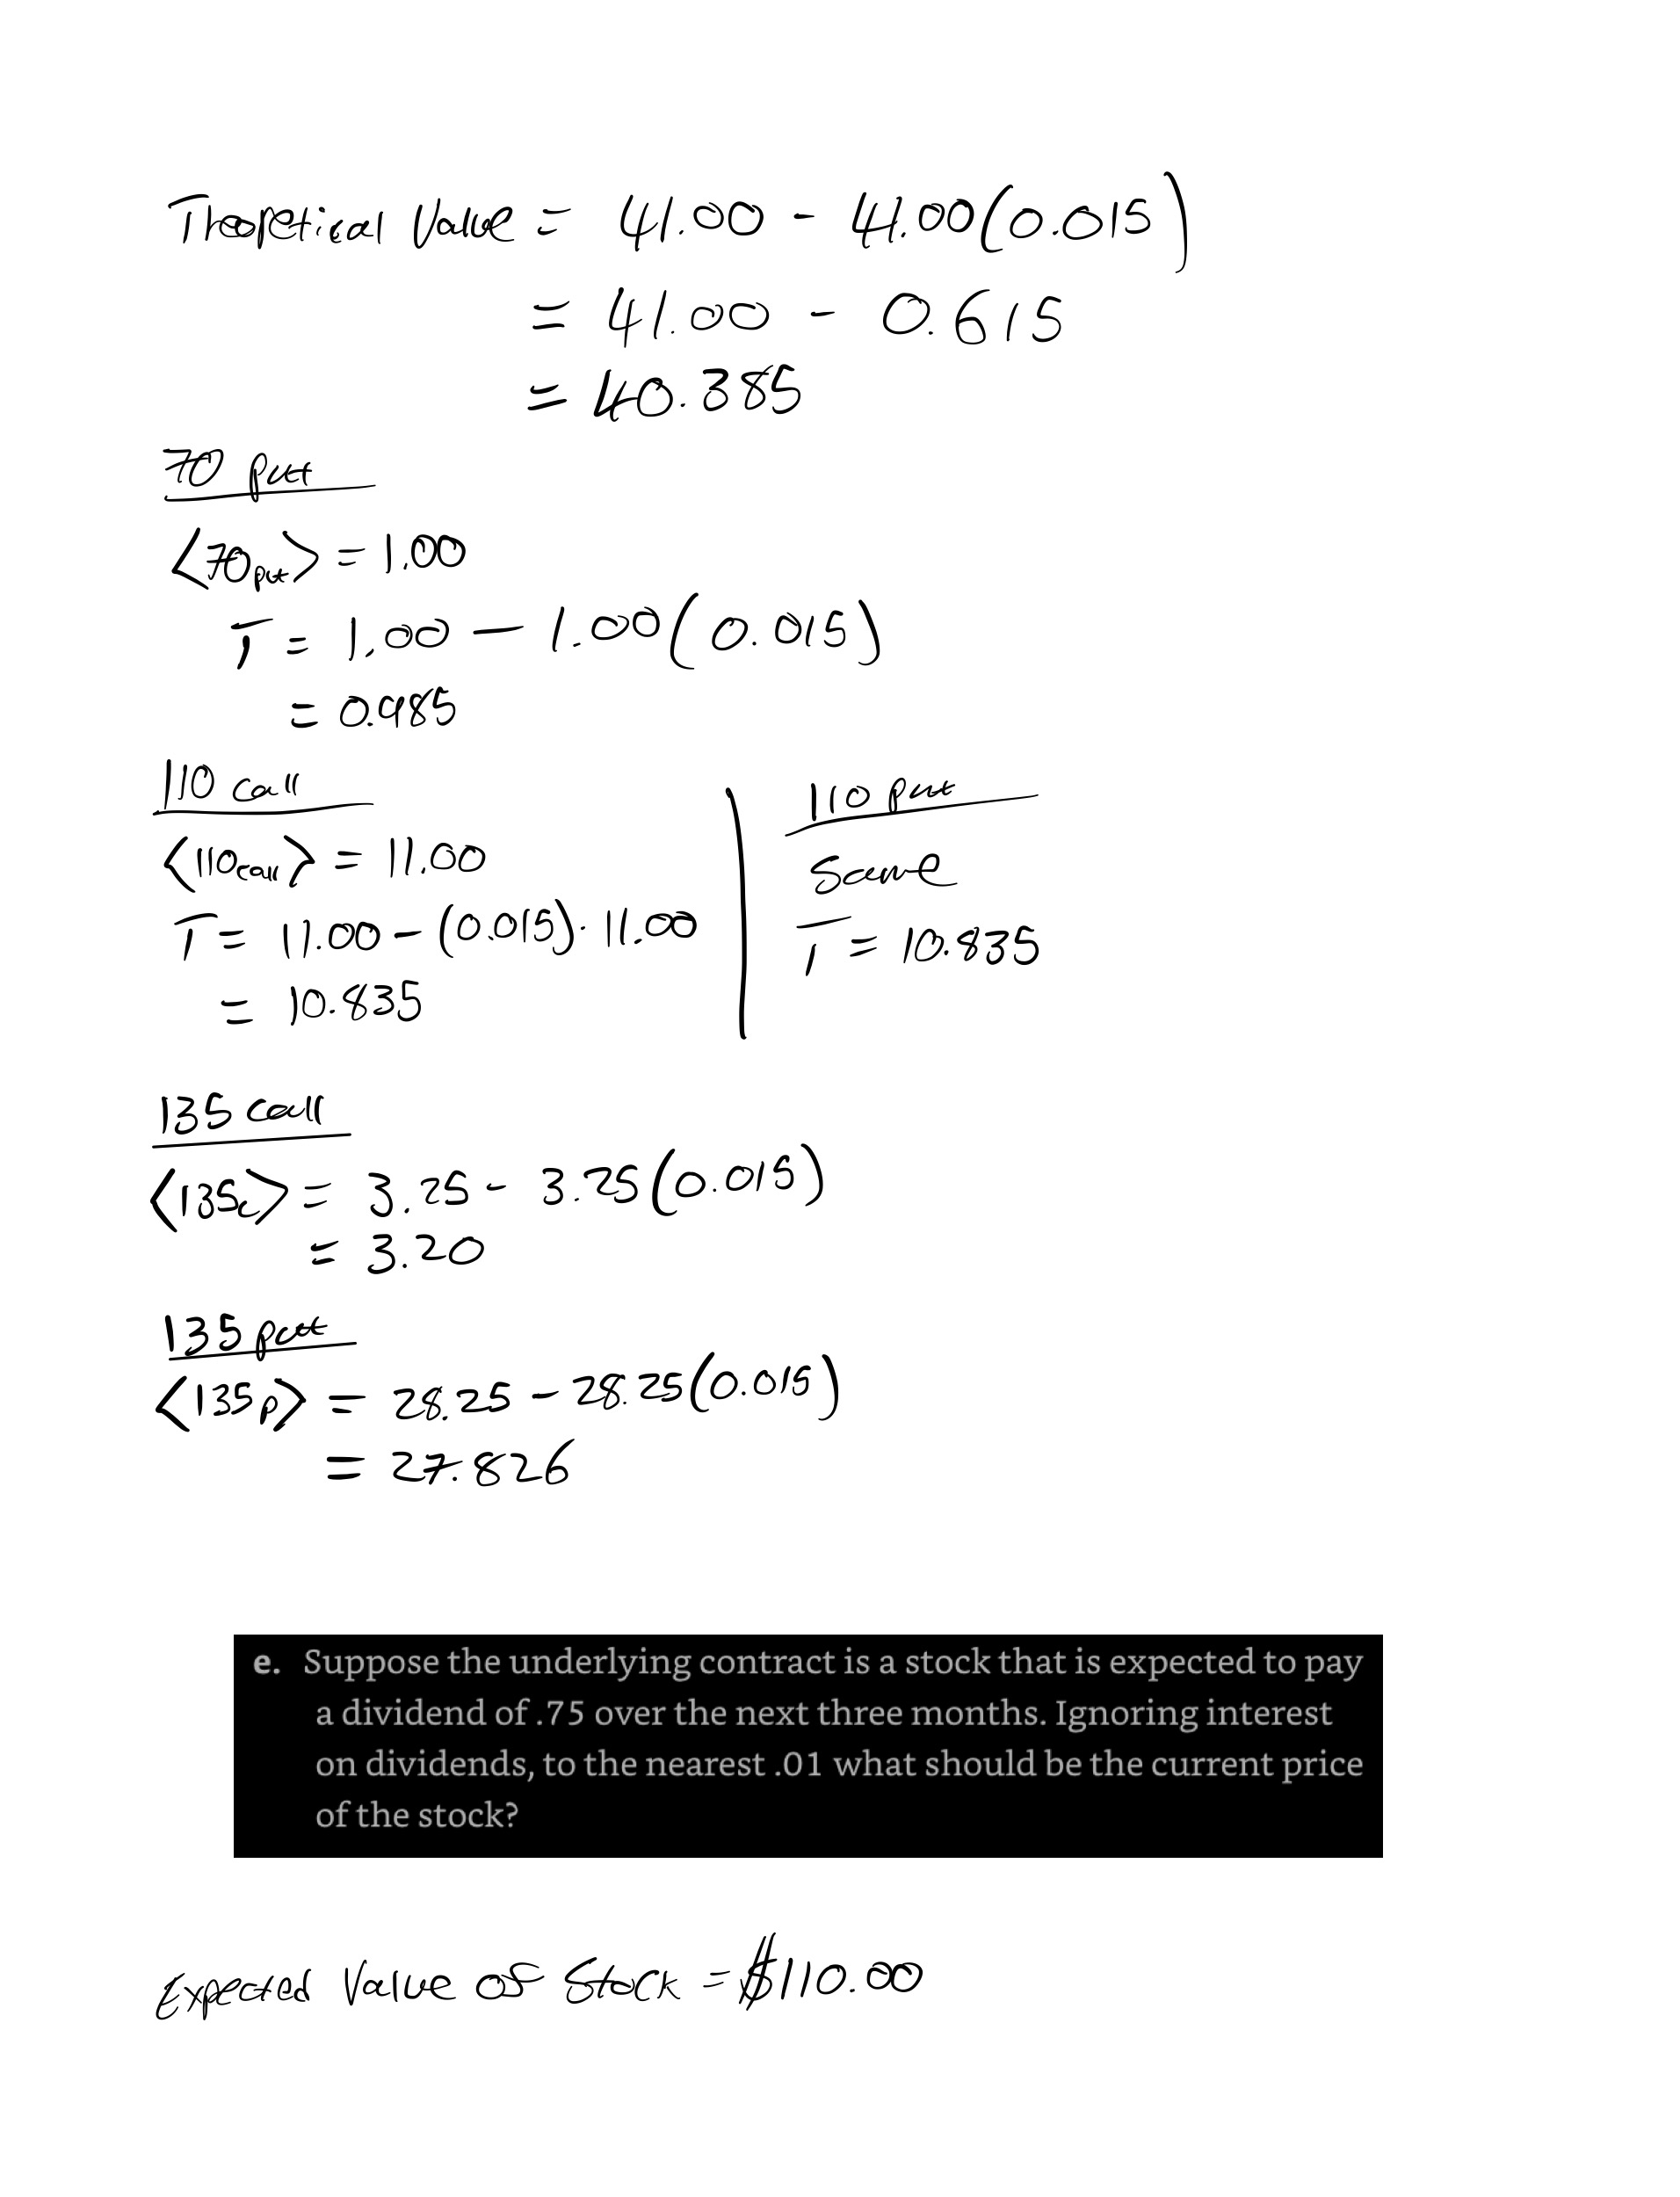 Theoretical Value = 41.00 - 41.00(0.015)
= 41.00 - 0.615
= 40.385
70 put
<70put> = 1.00
T = 1.00 - 1.00(0.015)
= 0.985
110 call
<110call> = 11.00
T = 11.00 - (0.015)·11.00
= 10.835
110 put
Same
T = 10.835
135 call
<135c> = 3.25 - 3.25(0.015)
= 3.20
135 put
<135p> = 28.25 - 28.25(0.015)
= 27.826
e. Suppose the underlying contract is a stock that is expected to pay
a dividend of .75 over the next three months. Ignoring interest
on dividends, to the nearest .01 what should be the current price
of the stock?
Expected Value of Stock = $110.00